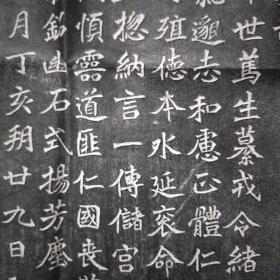 世篤生慕戎令緒
邈志和慮正體仁
殖德本水延哀命
揔納言一傳儲宮
慎靈道匪仁國喪
鈞幽石式揚芳塵
月丁亥朔廿九日